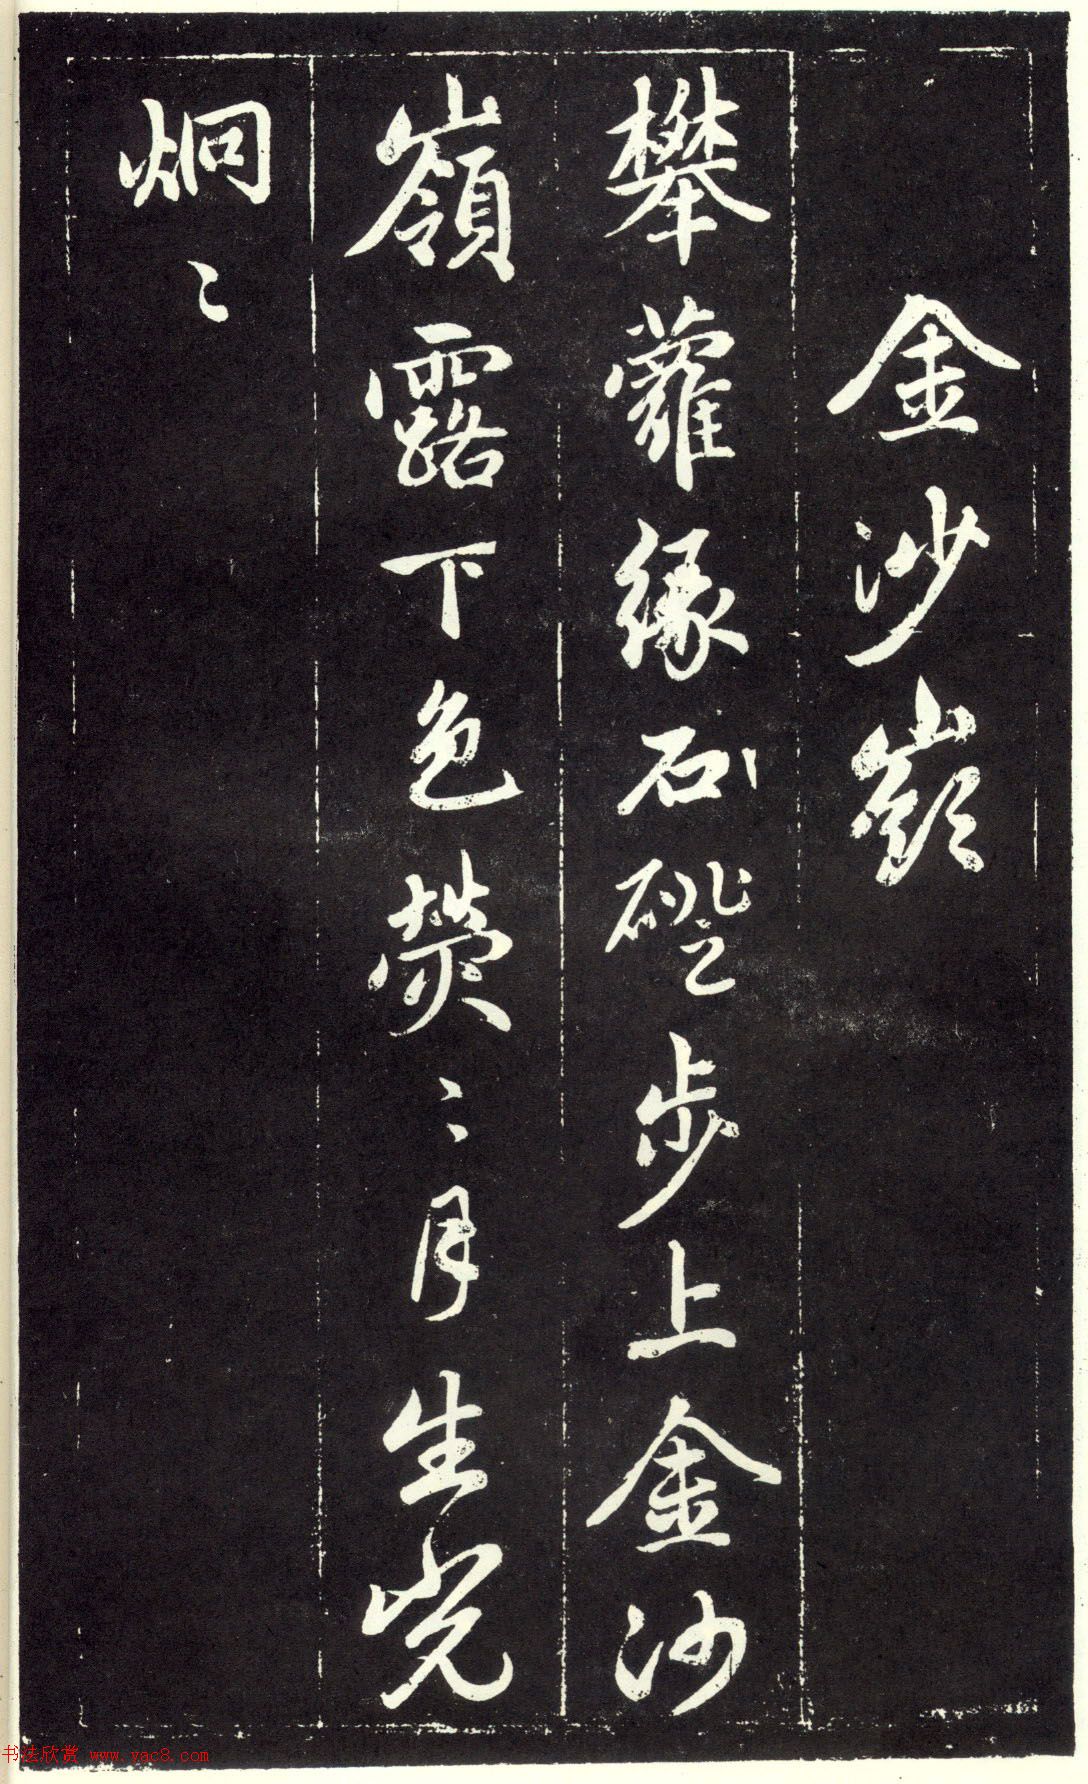 金沙嶺
攀蘿緣石磴步上金沙
嶺露下色熒〻月生光
炯〻
书法欣赏 www.yac8.com